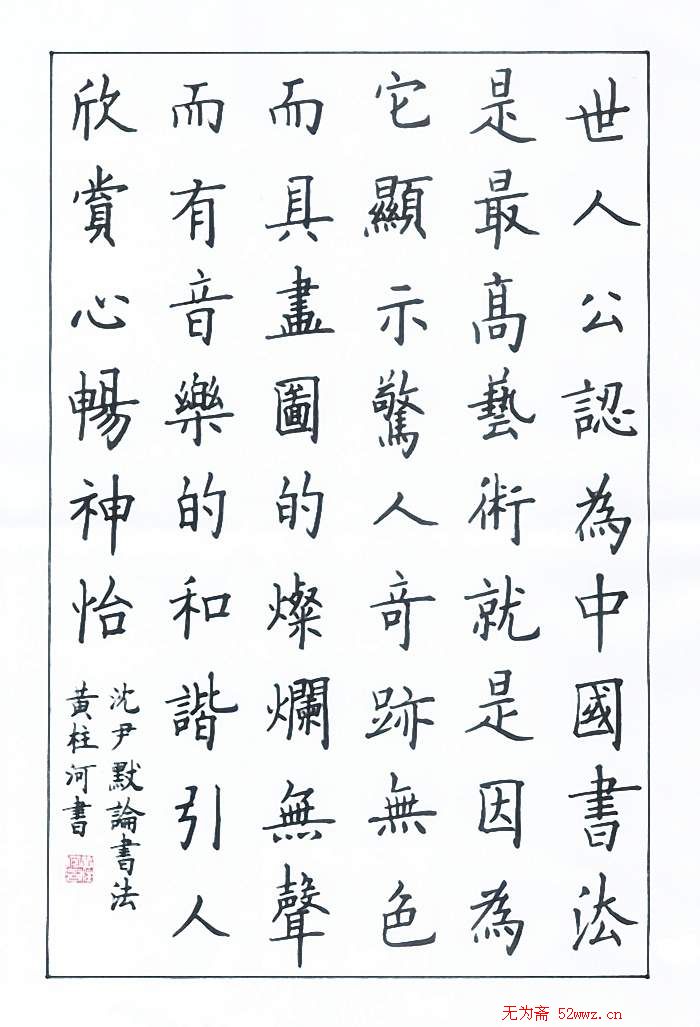 世人公認為中國書法
是最高藝術就是因為
它顯示驚人奇跡無色
而具畫圖的燦爛無聲
而有音樂的和諧引人
欣賞心暢神怡
沈尹默論書法
黃柱河書
无为斋 52wwz.cn